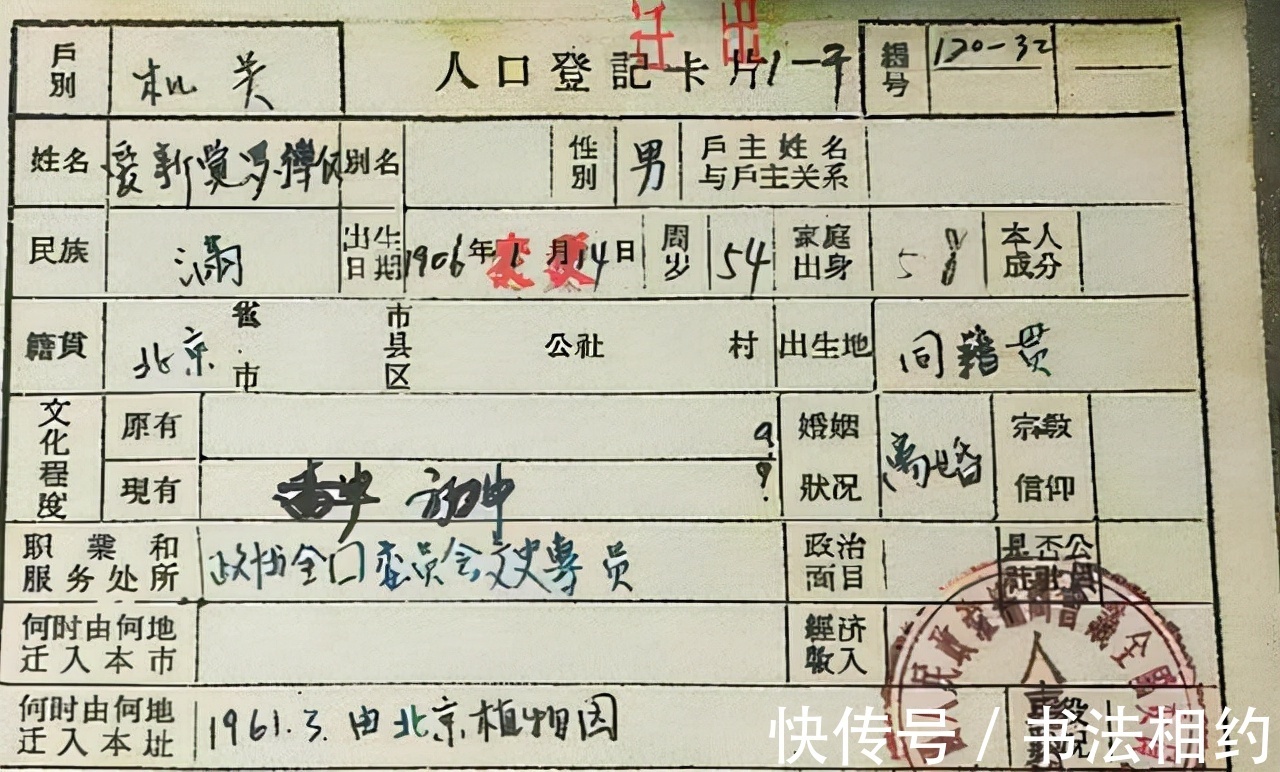 迁出
戶別 机关 人口登記卡片1-于 編号 120-32
姓名 爱新覺罗 別名 性別 男 戶主姓名 与戶主关系
民族 满 出生日期 1906年1月14日 周岁 54 家庭出身 本人成分
籍貫 北京 省 市 市县区 公社 村 出生地 同籍贯
文化程度 原有 婚姻狀况 离婚 宗教信仰
現有 初中
职業和服务处所 政协全囗委员会文史專员 政治面目 是否公
何时由何地迁入本市 經济收入
何时由何地迁入本址 1961.3.由北京植物园
快传号 / 书法相约